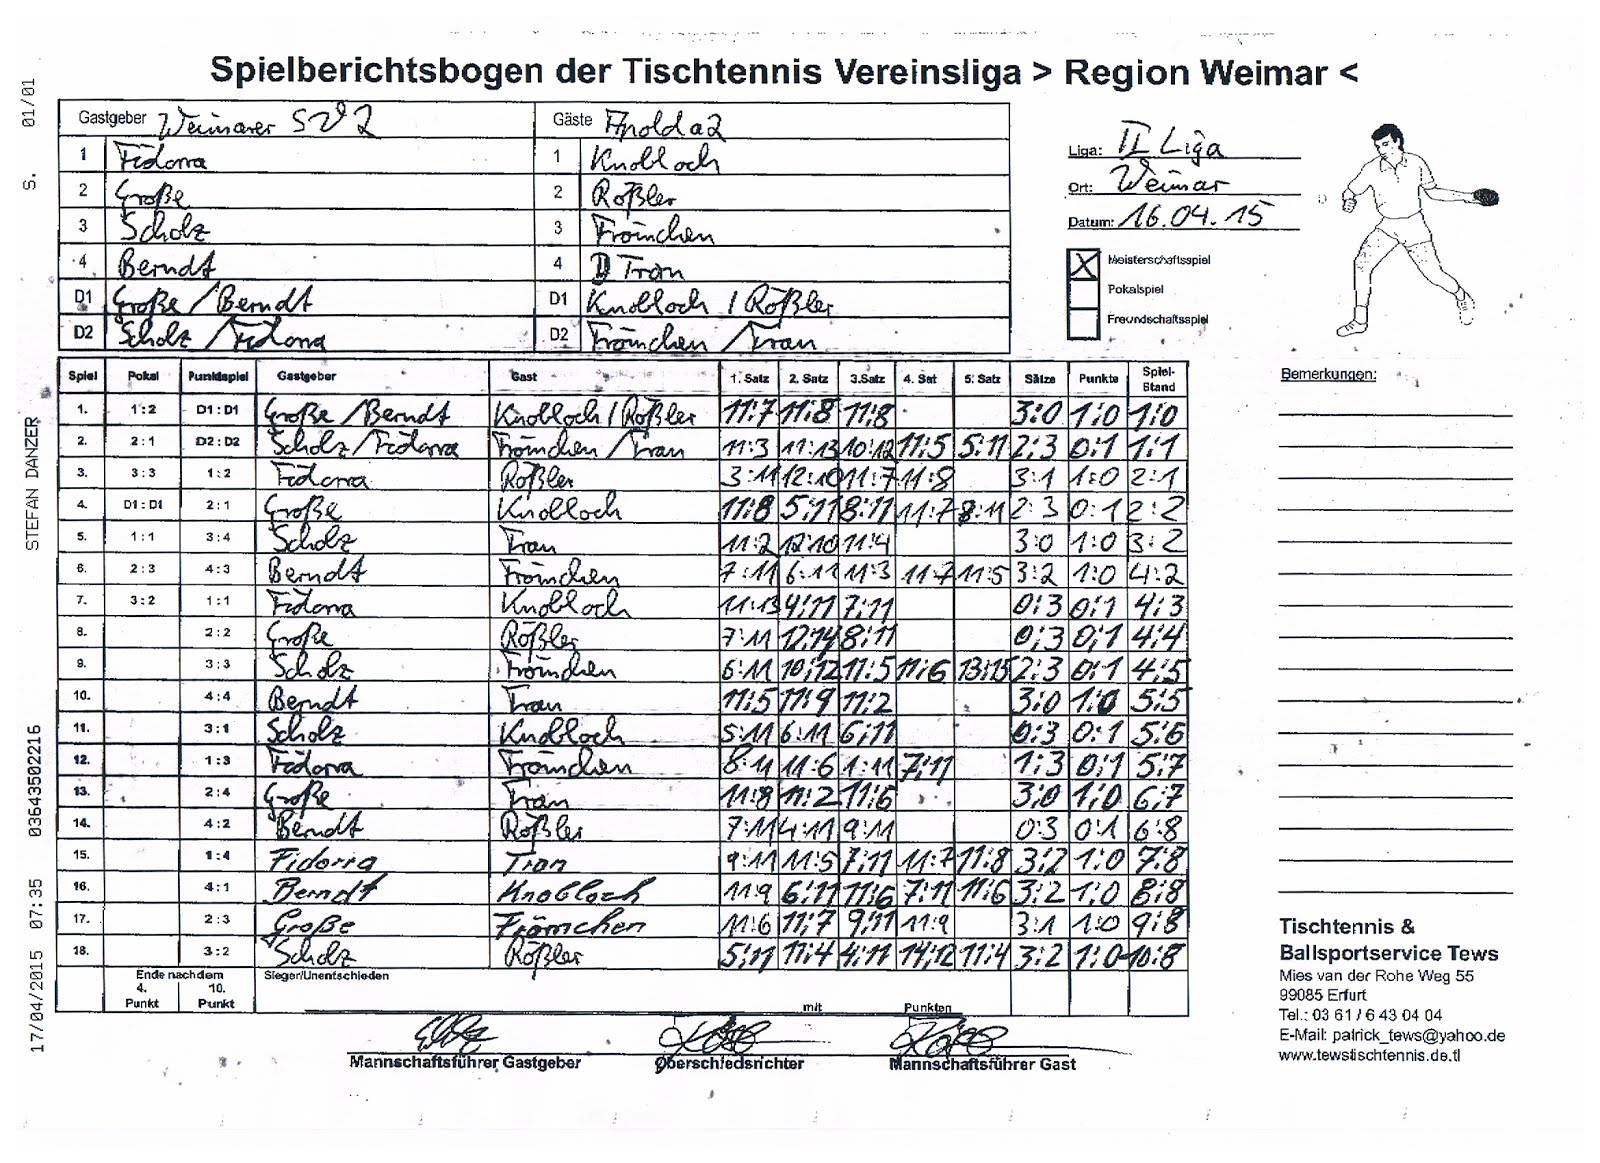 Spielberichtsbogen der Tischtennis Vereinsliga > Region Weimar <
Gastgeber Weimarer SV 2 Gäste Apolda 2
1 Fidorra 1 Knobloch
2 Große 2 Rößler
3 Scholz 3 Frömchen
4 Berndt 4 Tran
D1 Große / Berndt D1 Knobloch / Rößler
D2 Scholz / Fidorra D2 Frömchen / Tran
Liga: II Liga
Ort: Weimar
Datum: 16.04.15
X Meisterschaftsspiel
Pokalspiel
Freundschaftsspiel
Spiel Pokal Punktspiel Gastgeber Gast 1. Satz 2. Satz 3.Satz 4. Sat 5. Satz Sätze Punkte Spiel-Stand
1. 1 : 2 D1 : D1 Große / Berndt Knobloch / Rößler 11:7 11:8 11:8 3:0 1:0 1:0
2. 2 : 1 D2 : D2 Scholz / Fidorra Frömchen / Tran 11:3 11:13 10:12 11:5 5:11 2:3 0:1 1:1
3. 3 : 3 1 : 2 Fidorra Rößler 3:11 12:10 11:7 11:8 3:1 1:0 2:1
4. D1 : D1 2 : 1 Große Knobloch 11:8 5:11 8:11 11:7 8:11 2:3 0:1 2:2
5. 1 : 1 3 : 4 Scholz Tran 11:2 12:10 11:4 3:0 1:0 3:2
6. 2 : 3 4 : 3 Berndt Frömchen 7:11 6:11 11:3 11:7 11:5 3:2 1:0 4:2
7. 3 : 2 1 : 1 Fidorra Knobloch 11:13 9:11 7:11 0:3 0:1 4:3
8. 2 : 2 Große Rößler 7:11 12:14 8:11 0:3 0:1 4:4
9. 3 : 3 Scholz Frömchen 6:11 10:12 11:5 11:6 13:15 2:3 0:1 4:5
10. 4 : 4 Berndt Tran 11:5 11:9 11:2 3:0 1:0 5:5
11. 3 : 1 Scholz Knobloch 5:11 6:11 6:11 0:3 0:1 5:6
12. 1 : 3 Fidorra Frömchen 8:11 11:6 1:11 7:11 1:3 0:1 5:7
13. 2 : 4 Große Tran 11:8 11:2 11:6 3:0 1:0 6:7
14. 4 : 2 Berndt Rößler 7:11 4:11 9:11 0:3 0:1 6:8
15. 1 : 4 Fidorra Tran 9:11 11:5 7:11 11:7 11:8 3:2 1:0 7:8
16. 4 : 1 Berndt Knobloch 11:9 6:11 11:6 7:11 11:6 3:2 1:0 8:8
17. 2 : 3 Große Frömchen 11:6 11:7 9:11 11:9 3:1 1:0 9:8
18. 3 : 2 Scholz Rößler 5:11 11:4 4:11 14:12 11:4 3:2 1:0 10:8
Ende nach dem Sieger/Unentschieden
4. 10.
Punkt Punkt
mit Punkten
Mannschaftsführer Gastgeber Oberschiedsrichter Mannschaftsführer Gast
Bemerkungen:
Tischtennis &
Ballsportservice Tews
Mies van der Rohe Weg 55
99085 Erfurt
Tel.: 03 61 / 6 43 04 04
E-Mail: patrick_tews@yahoo.de
www.tewstischtennis.de.tl
17/04/2015 07:35 03643502216 STEFAN DANZER S. 01/01